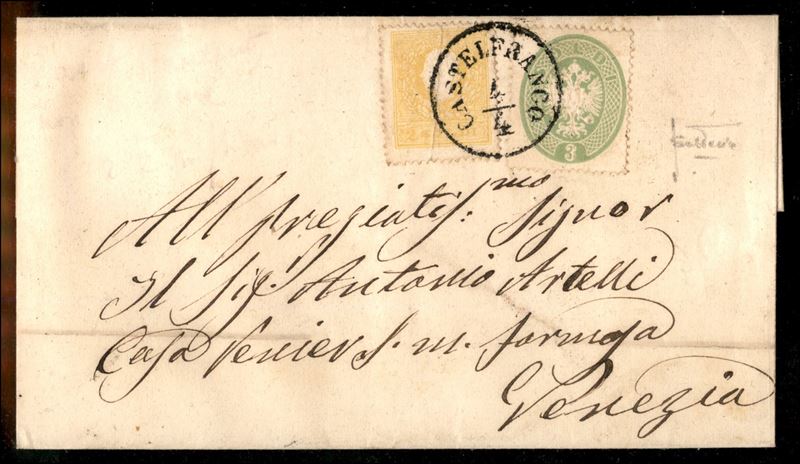 CASTELFRANCO
4/4
3
All' pregiatis:mo Signor
Il Sig.r Antonio Artelli
Casa Venier S. m. formosa
Venezia